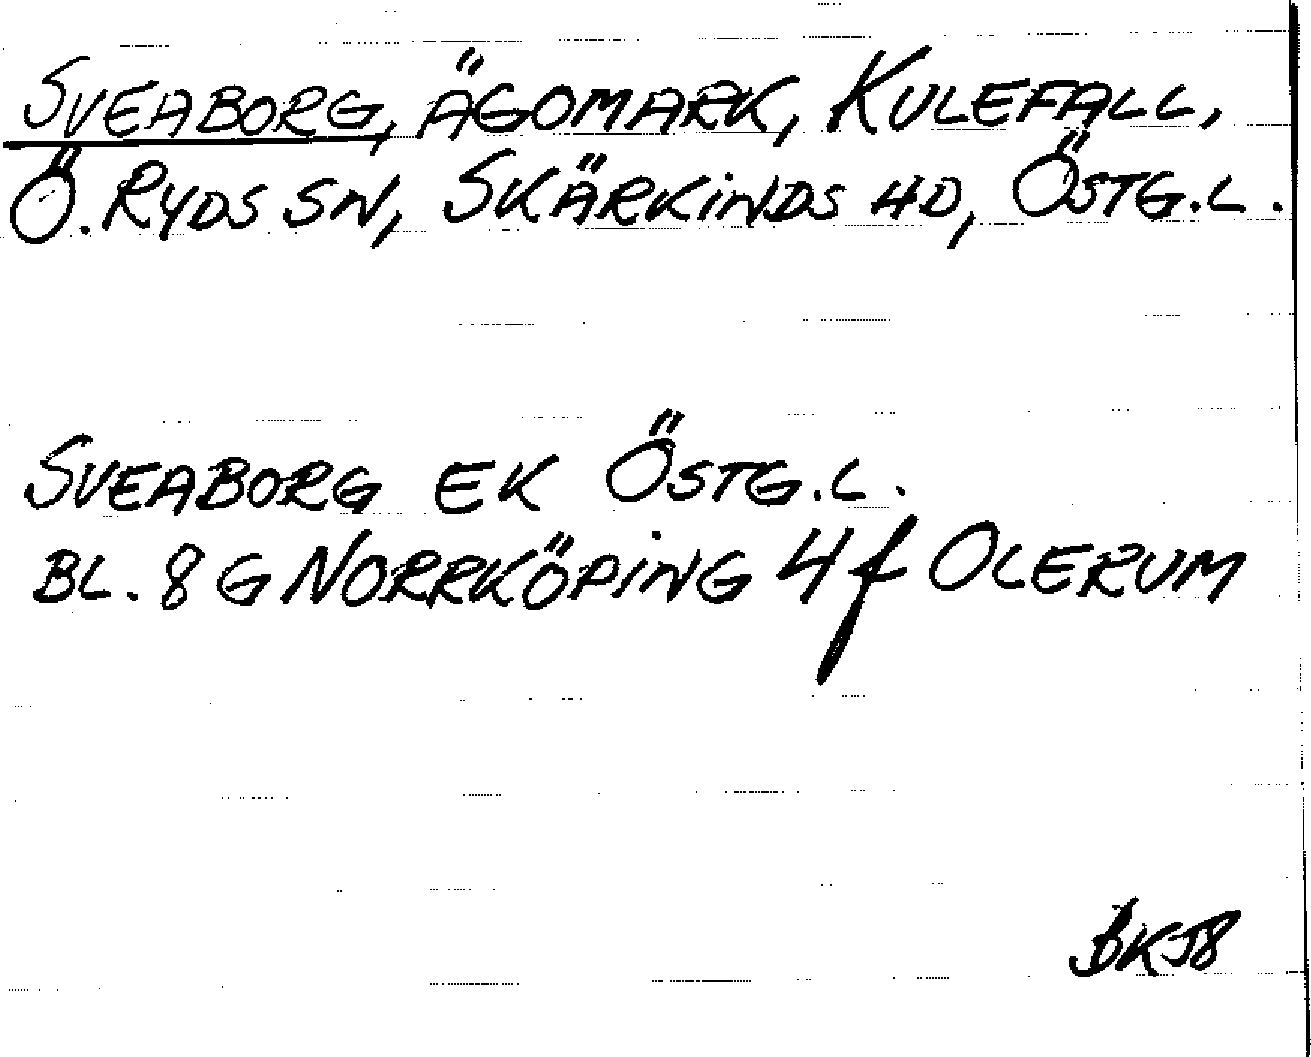 SVEABORG, ÄGOMARK, KULEFALL,
Ö. RYDS SN, SKÄRKINDS HD, ÖSTG.L.
SVEABORG EK ÖSTG.L.
BL. 8 G NORRKÖPING 4f OLERUM